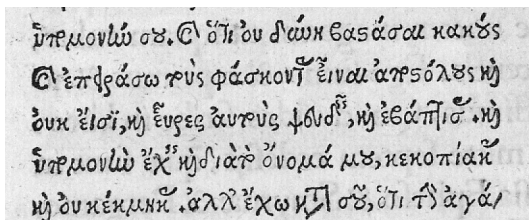 ὑπομονήν σου. καὶ ὅτι οὐ δύνῃ βαστάσαι κακούς
καὶ ἐπειράσω τοὺς φάσκοντας εἶναι ἀποστόλους καὶ
οὐκ εἰσὶ, καὶ εὗρες αὐτοὺς ψευδεῖς, καὶ ἐβάπτισας. καὶ
ὑπομονὴν ἔχεις καὶ διὰ τὸ ὄνομά μου, κεκοπίακας
καὶ οὐ κέκμηκας. ἀλλ' ἔχω κατὰ σοῦ, ὅτι τὴν ἀγά/